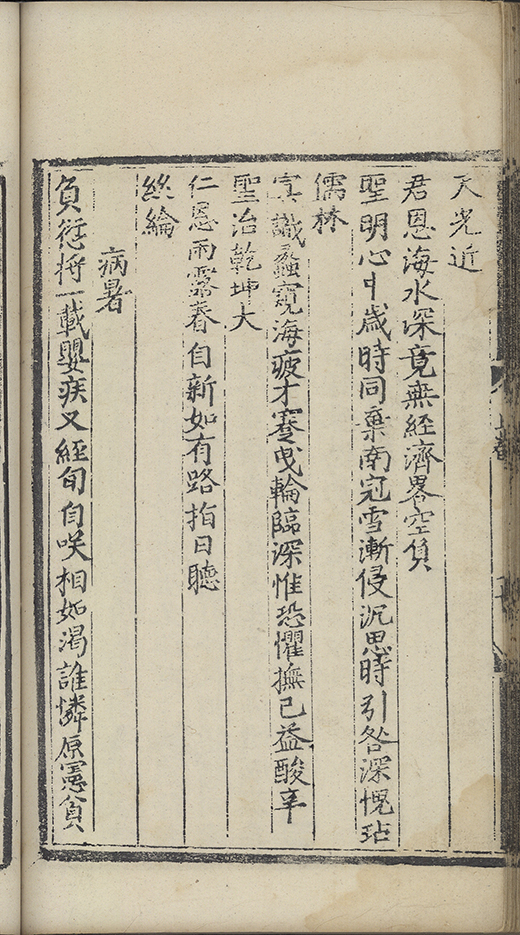 天光近
君恩海水深竟無經濟畧空負
聖明心中歲時同棄南冠雪漸侵沉思時引咎深愧玷
儒林
寡識蠡窺海疲才蹇曳輪臨深惟恐懼撫己益酸辛
聖治乾坤大
仁恩雨露春自新如有路拍日聽
絲綸
病暑
負愆將一載嬰疾又經旬自咲相如渴誰憐原憲貧